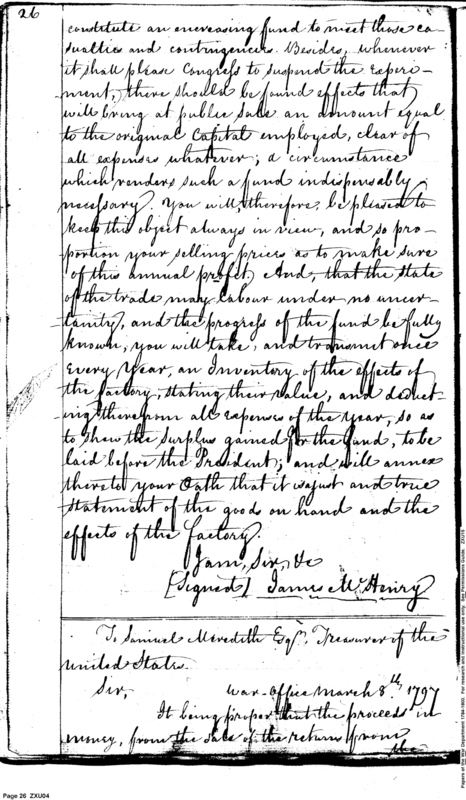 26
constitute an encreasing fund to meet those ca-
sualties and contingencies. Besides, whenever
it shall please Congress to suspend the experi-
ment, there should be found effects that
will bring at public sale an amount equal
to the original Capital employed, clear of
all expense whatever; a circumstance
which renders such a fund indispensably
necessary. You will, therefore, be pleased to
keep this object always in view, and so pro-
portion your selling prices as to make sure
of this annual profit. And, that the state
of the trade may labour under no uncer-
tainty, and the progress of the fund be fully
known, you will take, and transmit once
Every Year, an Inventory of the effects of
the factory, stating their value, and deduct-
ing therefrom all expenses of the Year, so as
to shew the surplus gained for the fund, to be
laid before the President; and will annex
thereto your Oath that it is a just and true
statement of the goods on hand and the
effects of the factory.
I am, Sir, &c
[Signed] James McHenry
To Samuel Meredith Esqr. Treasurer of the
united States.
Sir,
War-Office March 8th 1797
It being proper that the proceeds in
money, from the sale of the returns from
the
Papers of the War Department 1784-1800. For research and instructional use only. See Permissions Guide. ZXU15
Page 26 ZXU04